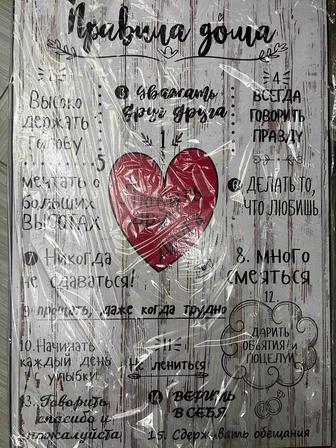 Правила дома
1
Любить
друг
друга
2
Высоко
держать
голову
3 Уважать
друг друга
4
ВСЕГДА
ГОВОРИТЬ
ПРАВДУ
5
мечтать о
больших
ВЫСОТАХ
6 ДЕЛАТЬ ТО,
ЧТО ЛЮБИШЬ
7 Никогда
не сдаваться!
8. много
смеяться
9. прощать, даже когда трудно
10. Начинать
каждый день
с улыбки
Не лениться
12.
ДАРИТЬ
ОБЪЯТИЯ И
ПОЦЕЛУИ
13. Говорить
спасибо и
пожалуйста
14 ВЕРИТЬ
В СЕБЯ
15. Сдерживать обещания